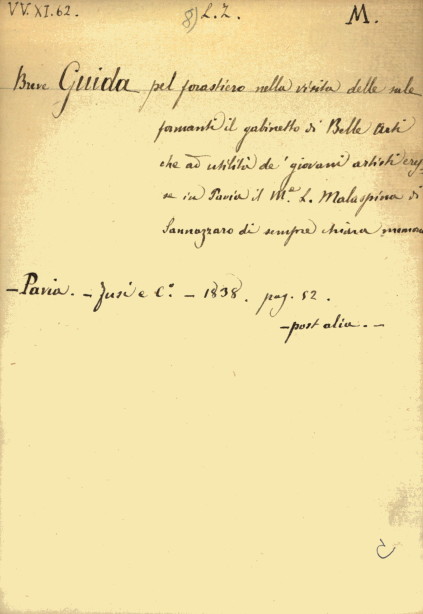 VV.XI.62. 8) L.Z. M.
Breve Guida pel forastiero nella visita delle sale
formanti il gabinetto di Belle Arti
che ad utilità de' giovani artisti eres-
se in Pavia il M.e L. Malaspina di
Sannazzaro di sempre chiara memoria
- Pavia. - Fusi e C.o - 1838. pag. 52.
- post alia. -